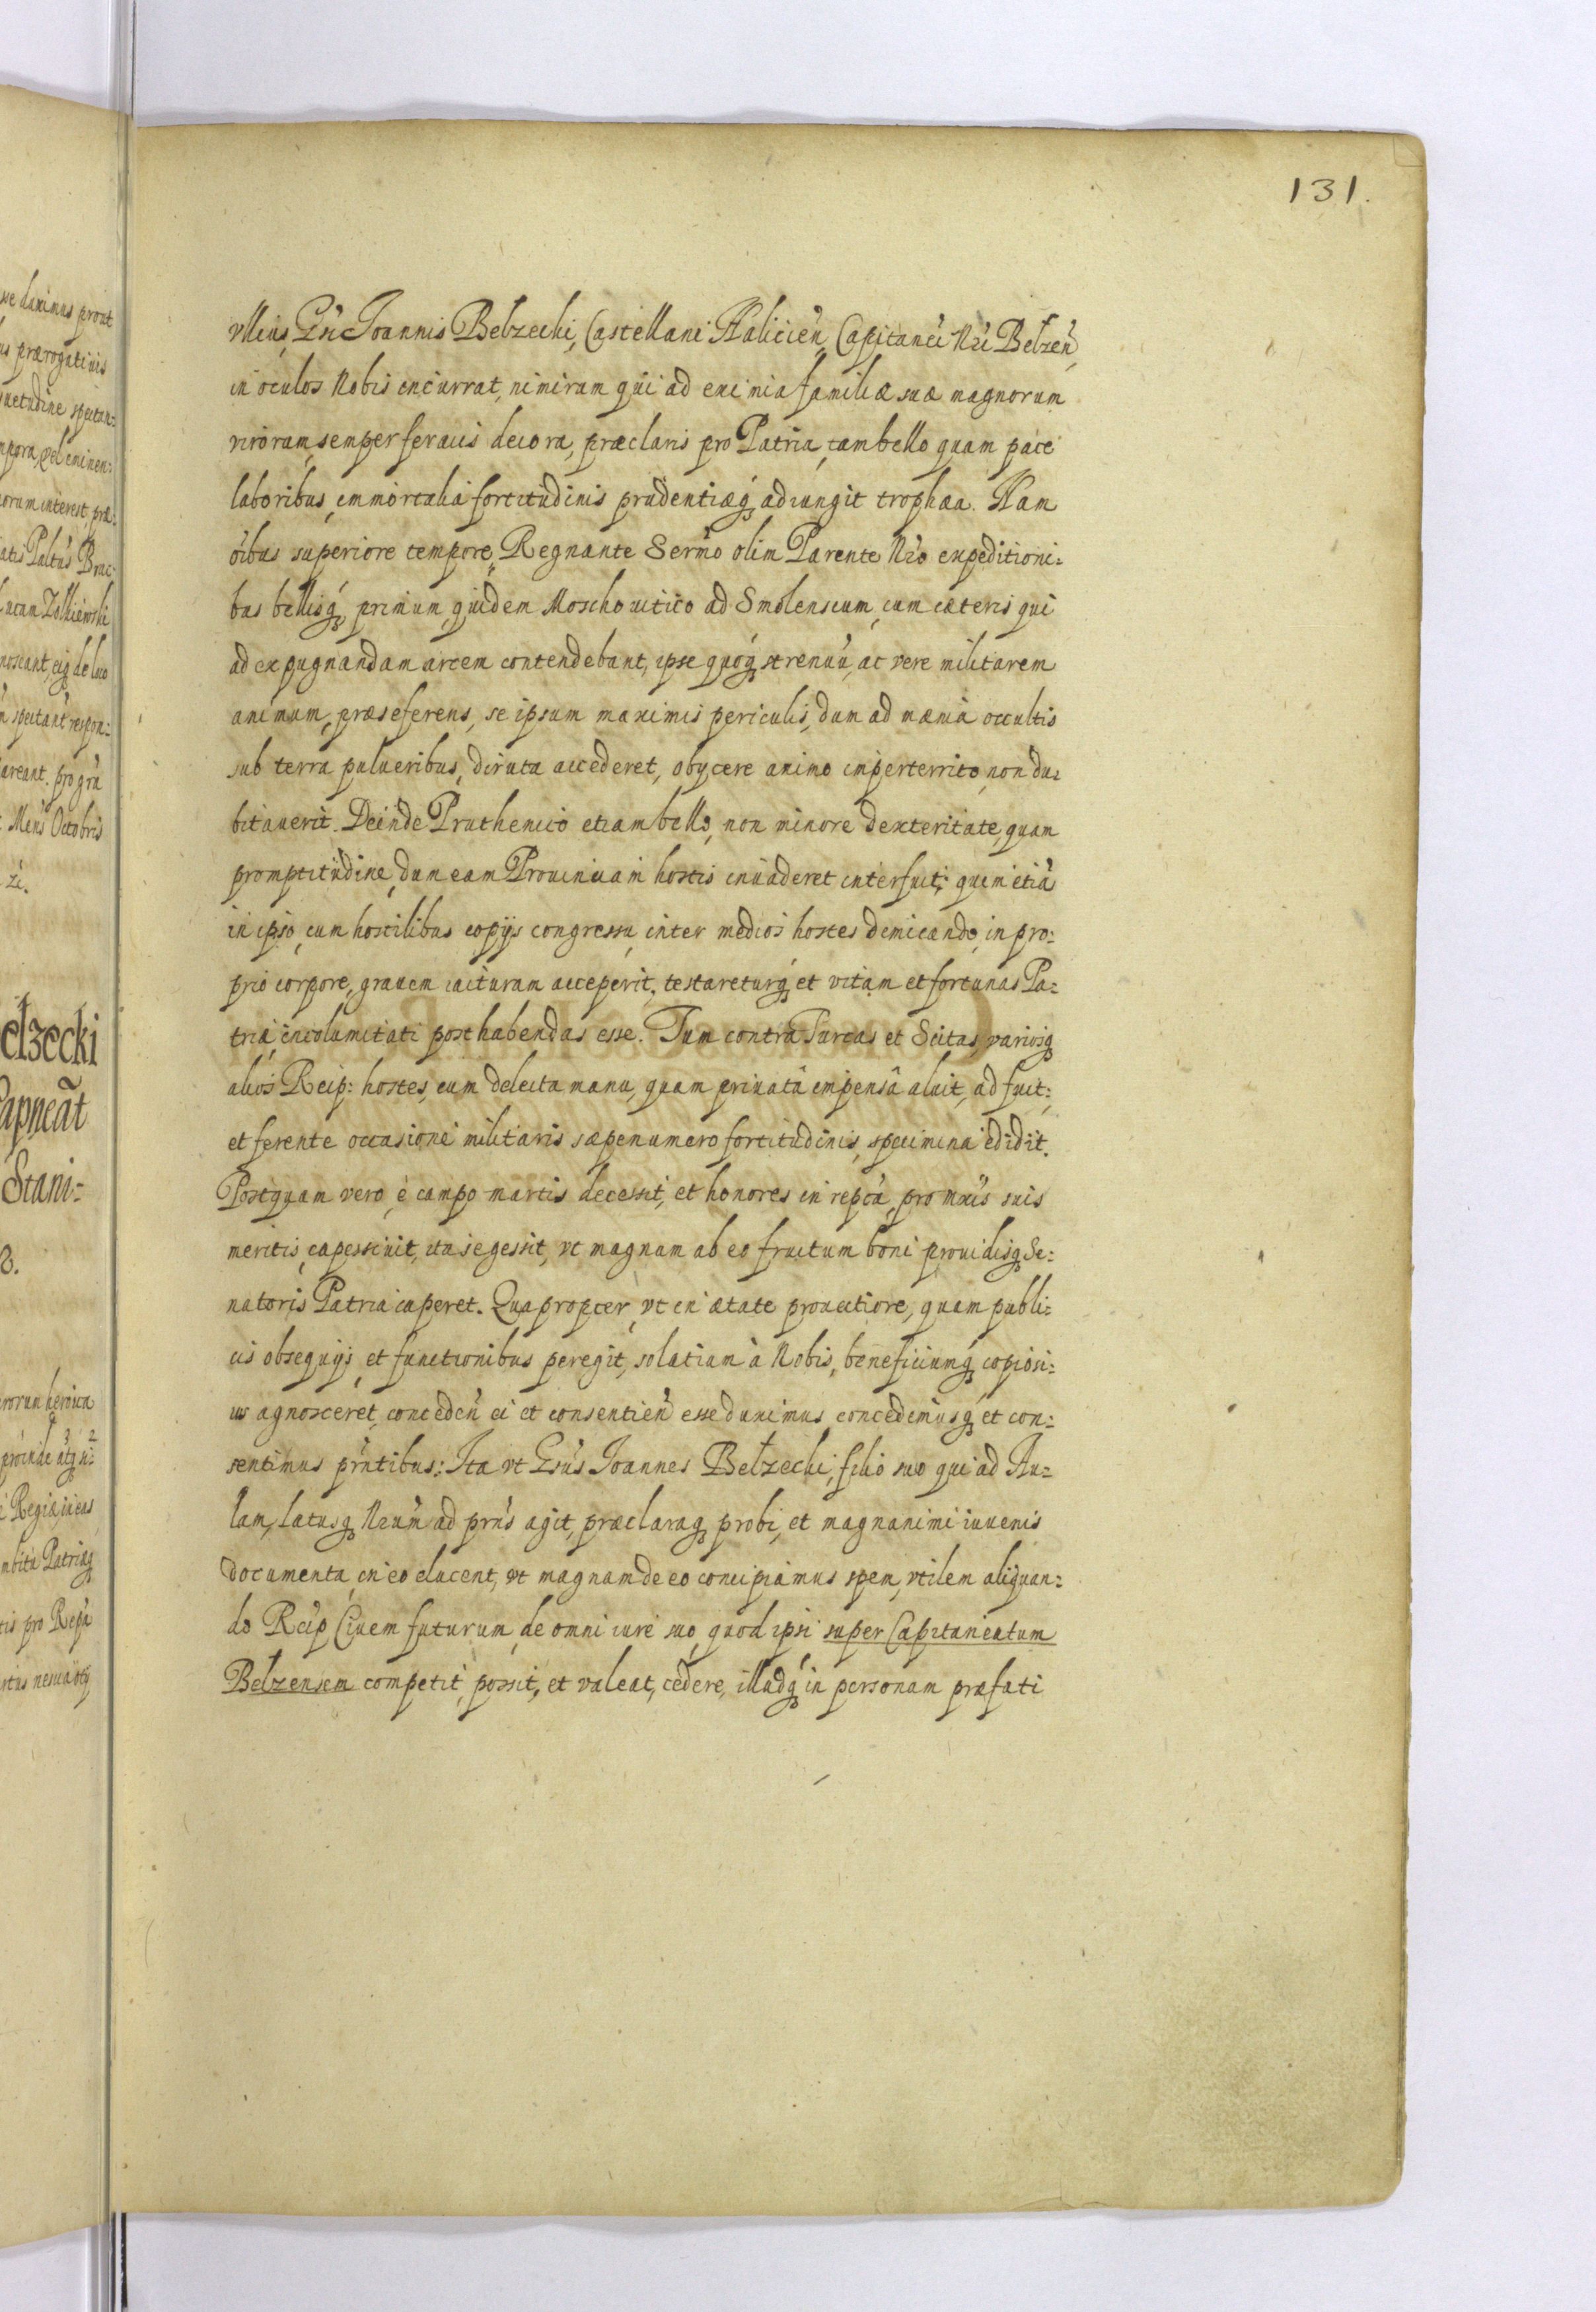 131.
ullius, Gñi Joannis Belzecki, Castellani Haliciéñ, Capitanei Nrí Belzeñ,
in oculos Nobis incurrat, nimirum qui ad eximia familiæ suæ magnorum
virorum, semper feracis decora, præclaris pro Patria, tam bello quam pace
laboribus, immortalia fortitudinis prudentiæq; adiungit trophæa. Nam
oibus superiore tempore, Regnante Sermo olim Parente Nro expeditioni=
bus bellisq; primum quidem Moschovitico ad Smolenscum, cum cæteris qui
ad expugnandam arcem contendebant, ipse quoq; strenuũ, ac vere militarem
animum, præseferens, se ipsum maximis periculis, dum ad mænia occultis
sub terra pulueribus, diruta accederet, obycere animo imperterrito, non du=
bitauerit. Deinde Pruthenico etiam bello, non minore dexteritate, quam
promptitudine, dum eam Prouinciam hostis inuaderet interfuit; quin etiã
in ipso, cum hostilibus copijs congressu, inter medios hostes dimicando, in pro=
prio corpore, grauem iacturam acceperit, testareturq; et vitam et fortunas Pa=
triæ incolumitati posthabendas esse. Tum contra Turcas et Scitas, variosq;
alios Reip: hostes, cum delecta manu, quam priuatâ impensâ aluit, adfuit;
et ferente occasione militaris sæpenumero fortitudinis, specimina edidit.
Postquam vero, è campo martis decessit, et honores in repcâ, pro mxiís suis
meritis, capessiuit, ita se gessit, vt magnam ab eo fructum boni prouidisq; Se=
natoris Patria caperet. Quapropter, vt in ætate prouectiore, quam publi=
cis obsequijs, et functionibus peregit, solatium à Nobis, beneficiumq; copiosi=
us agnosceret, concedeñ ei et consentieñ esse duximus, concedimusq; et con=
sentimus pñtibus: Ita vt Gsús Joannes Belzecki, filio suo qui ad Au=
lam, Latusq; Nrum ad prns agit, præclaraq; probi, et magnanimi iuvenis
documenta, in eo elucent, vt magnam de eo concipiamus spem, vtilem aliquan=
do Reip Civem futurum, de omni iure suo, quod ipsi super Capitaneatum
Belzensem competit, possit, et valeat, cedere, illudq; in personam præfati